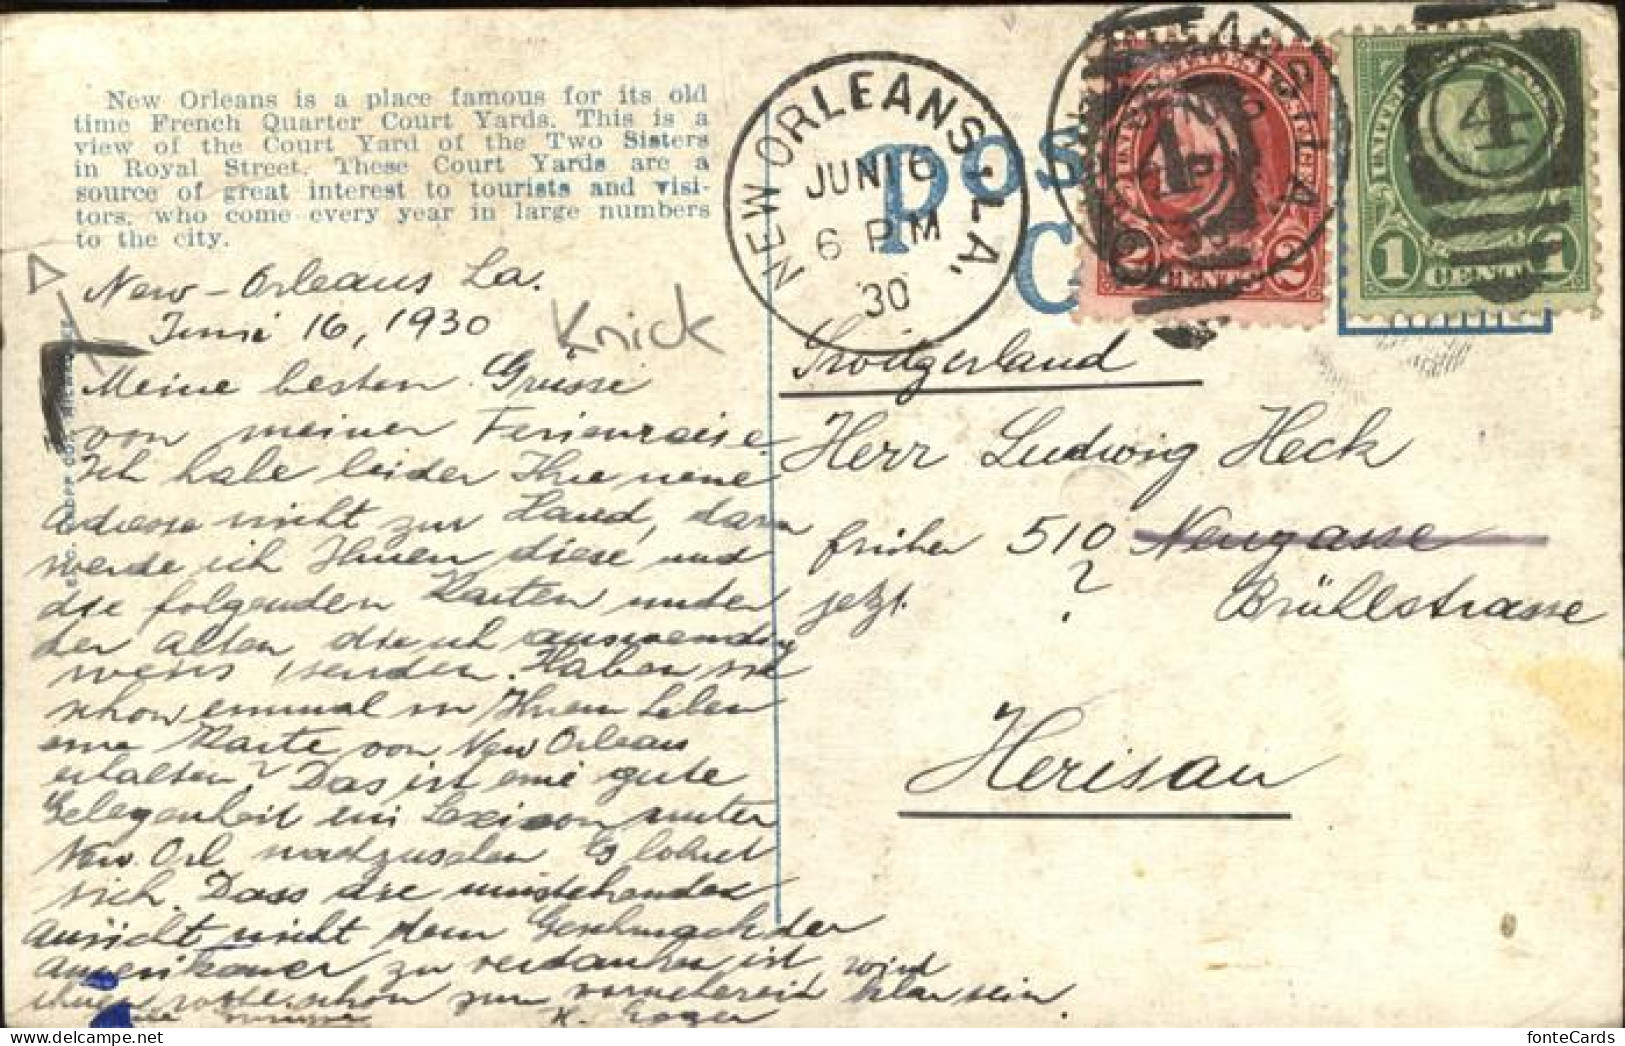 New Orleans is a place famous for its old
time French Quarter Court Yards. This is a
view of the Court Yard of the Two Sisters
in Royal Street. These Court Yards are a
source of great interest to tourists and visi-
tors, who come every year in large numbers
to the city.
New-Orleans La.
Juni 16, 1930
Knick
Meine besten Grüsse
von meiner Ferienreise.
Ich habe leider Ihre neue
Adresse nicht zur Hand, darum
werde ich Ihnen diese und
die folgenden Karten unter
der alten die ich auswendig
weis senden. Haben sie
schon einmal in Ihrem Leben
eine Karte von New Orleans
erhalten? Das ist eine gute
Gelegenheit im Lexicon unter
New. Orl. nachzusehen Es lohnt
sich. Dass die umstehende
Ansicht nicht dem Geschmack der
Amerikaner zu verdanken ist, wird
Ihnen schon zum vorneherein klar sein.
NEW ORLEANS, LA.
JUN 16
6 PM
30
POS
C
4
2 CENTS 2
4
1 CENT 1
Herr Ludwig Heck
früher 510 Neugasse
jetzt ? Brühlstrasse
Herisau
fonteCards